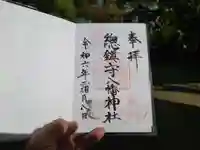 奉拝
總鎮守八幡神社
令和六年二月八日